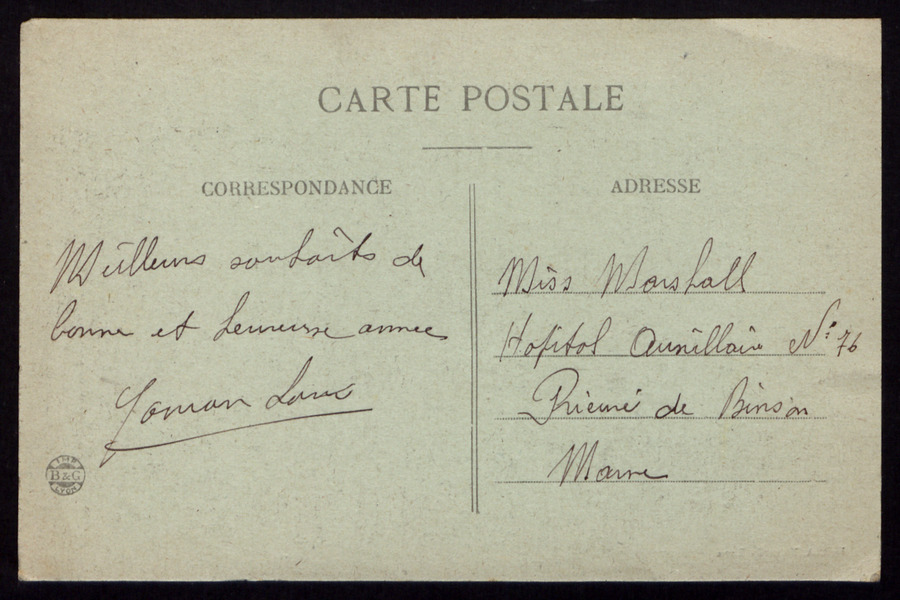 CARTE POSTALE
CORRESPONDANCE
Meilleurs souhaits de
bonne et heureuse année
ADRESSE
Miss Marshall
Hopital Auxiliaire N° 76
Prieuré de Binson
Marne
IMP
B & G
LYON